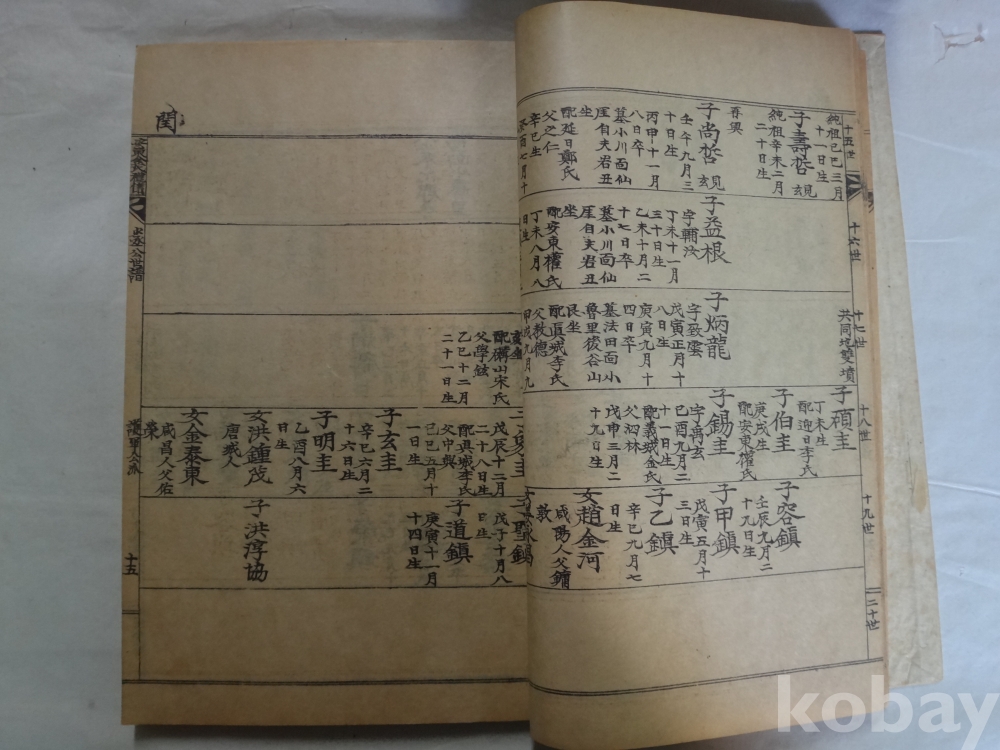 十五世
子壽哲 覢
純祖己巳三月
十一日生
純祖辛未二月
二十日生
子尚哲 覢
春興
壬午九月三
十日生
丙甲十一月
八日卒
墓小川面仙
厓自夫岩丑
坐
配延日鄭氏
父之仁
辛巳生
十六世
子益根
字輔汝
丁未十一月
三十日生
乙未十月二
十七日卒
墓小川面仙
厓自夫岩丑
坐
配安東權氏
丁未八月八
日生
十七世
共同坑雙墳
子炳龍
字致雲
戊寅正月十
八日生
庚寅九月十
四日卒
墓法田面小
魯里後谷山
艮坐
配眞城李氏
父敎德
甲戌九月九
十八世
子禎圭
丁未生
配迎日李氏
子伯圭
庚戌生
配安東權氏
子錫圭
字禹玄
己酉九月二
十一日生
配義城金氏
父泗林
戊申三月二
十九日生
十九世
子容鎭
壬辰九月二
十九日生
子甲鎭
戊寅五月十
三日生
子乙鎭
辛巳九月七
日生
女趙金河
咸陽人父鏞
敦
二十世
配礪山宋氏
父學鉉
乙巳十二月
二十一日生
戊辰十二月
二十八日生
配眞城李氏
父中興
己巳五月十
一日生
子玄圭
辛巳六月二
十六日生
子明圭
乙酉八月六
日生
女洪鍾茂
唐城人
女金泰東
咸昌人父佑
榮
子聖鎭
戊子十月八
日生
子道鎭
庚寅十一月
十四日生
子洪淳協
閏
十五
kobay